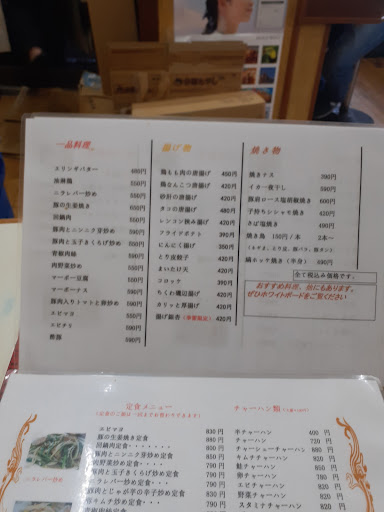 一品料理
エリンギバター 480円
油淋鶏 550円
ニラレバー炒め 550円
豚の生姜焼き 650円
回鍋肉 550円
豚肉とニンニク芽炒め 590円
豚肉と玉子きくらげ炒め 590円
青椒肉絲 590円
肉野菜炒め 590円
マーボー豆腐 550円
マーボーナス 590円
豚肉入りトマトと卵炒め 590円
エビマヨ 550円
エビチリ 590円
酢豚 590円
揚げ物
鶏もも肉の唐揚げ 450円
鶏なんこつ唐揚げ 420円
砂肝の唐揚げ 420円
タコの唐揚げ 480円
レンコン挟み揚げ 420円
フライドポテト 390円
にんにく揚げ 350円
とり皮餃子 420円
まいたけ天 420円
コロッケ 390円
ちくわ磯辺揚げ 390円
カリッと厚揚げ 420円
揚げ銀杏(季節限定) 420円
焼き物
焼きナス 390円
イカ一夜干し 590円
豚肩ロース塩胡椒焼き 600円
子持ちシシャモ焼き 420円
さば塩焼き 490円
焼き鳥 150円/本 2本~
縞ホッケ焼き(半身) 590円
全て税込み価格です。
おすすめ料理、他にもあります。
ぜひホワイトボードをご覧ください
定食メニュー
チャーハン類
エビマヨ 830円
豚の生姜焼き定食 830円
回鍋肉定食 790円
豚肉とニンニク芽炒め定食 830円
肉野菜炒め定食 790円
豚肉と玉子きくらげ炒め定食 790円
豚肉とじゃが芋の辛子炒め定食 790円
キムチ炒め定食
半チャーハン 400円
チャーハン 720円
チャーシューチャーハン 820円
キムチチャーハン 850円
鮭チャーハン 850円
卵チャーハン 780円
エビチャーハン 820円
野菜チャーハン 820円
スタミナチャーハン 820円
ニラレバー炒め